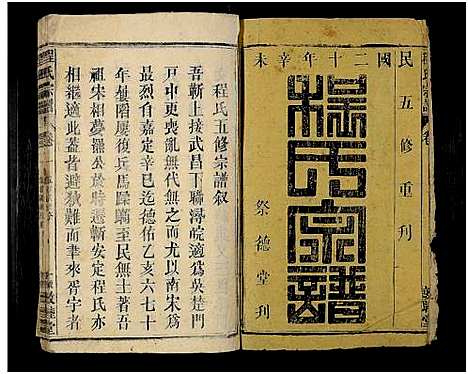 民國二十年辛未
程氏宗譜
五修重刊
祭德堂刊
程氏五修宗譜叙
吾蘄上接武昌下聯潯皖適為吳楚門
戸中更喪亂無代無之而尤以南宋為
最烈自嘉定辛巳迄德佑乙亥六七十
年蹂躪屢復兵馬蹂躪至民無土著吾
祖宋相夢擺公於時遷蘄安定程氏亦
相繼適此蓋皆避狄難而來胥宇者